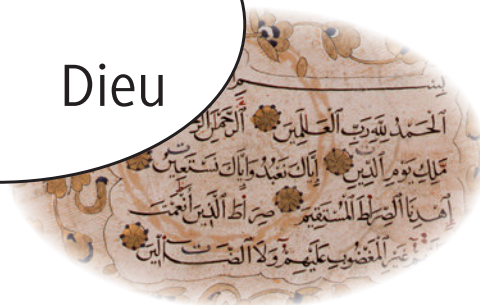 Dieu
بِسْم
اَلْحَمْدُ لِلّٰهِ رَبِّ اَلْعَالَمِينَ اَلرَّحْمٰنِ
مَلِكِ يَوْمِ اَلدِّينِ إِيَّاكَ نَعْبُدُ وَإِيَّاكَ نَسْتَعِينُ
اِهْدِنَا اَلصِّرَاطَ اَلْمُسْتَقِيمَ صِرَاطَ اَلَّذِينَ أَنْعَمْتَ
غَيْرِ اَلْمَغْضُوبِ عَلَيْهِمْ وَلَا اَلضَّالِّينَ